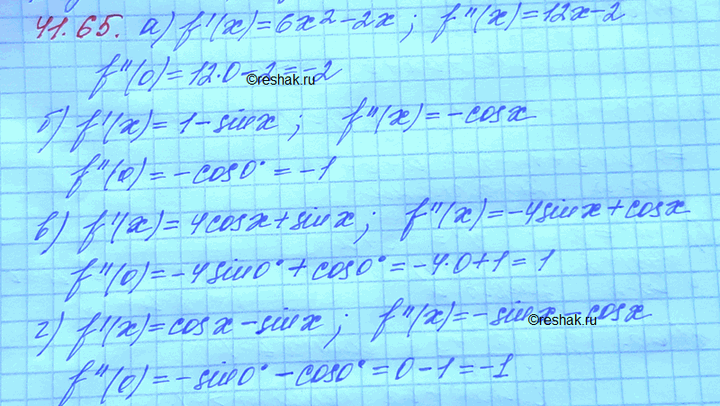 41.65. а) f'(x)=6x²-2x; f"(x)=12x-2
f"(0)=12·0-2=-2
©reshak.ru
б) f'(x)=1-sinx; f"(x)=-cosx
f"(0)=-cos0°=-1
в) f'(x)=4cosx+sinx; f"(x)=-4sinx+cosx
f"(0)=-4sin0°+cos0°=-4·0+1=1
г) f'(x)=cosx-sinx; f"(x)=-sinx-cosx
©reshak.ru
f"(0)=-sin0°-cos0°=0-1=-1